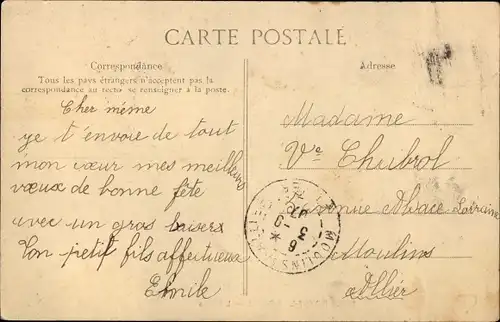 CARTE POSTALE
Correspondance
Tous les pays étrangers n'acceptent pas la
correspondance au recto se renseigner à la poste.
Cher mémé
je t'envoie de tout
mon cœur mes meilleurs
vœux de bonne fête
avec un gros baisers
Ton petit fils affectueux
Emile
Adresse
Madame
Vve Chubrol
Avenue Alsace Lorraine
Moulins
Allier
MOULINS